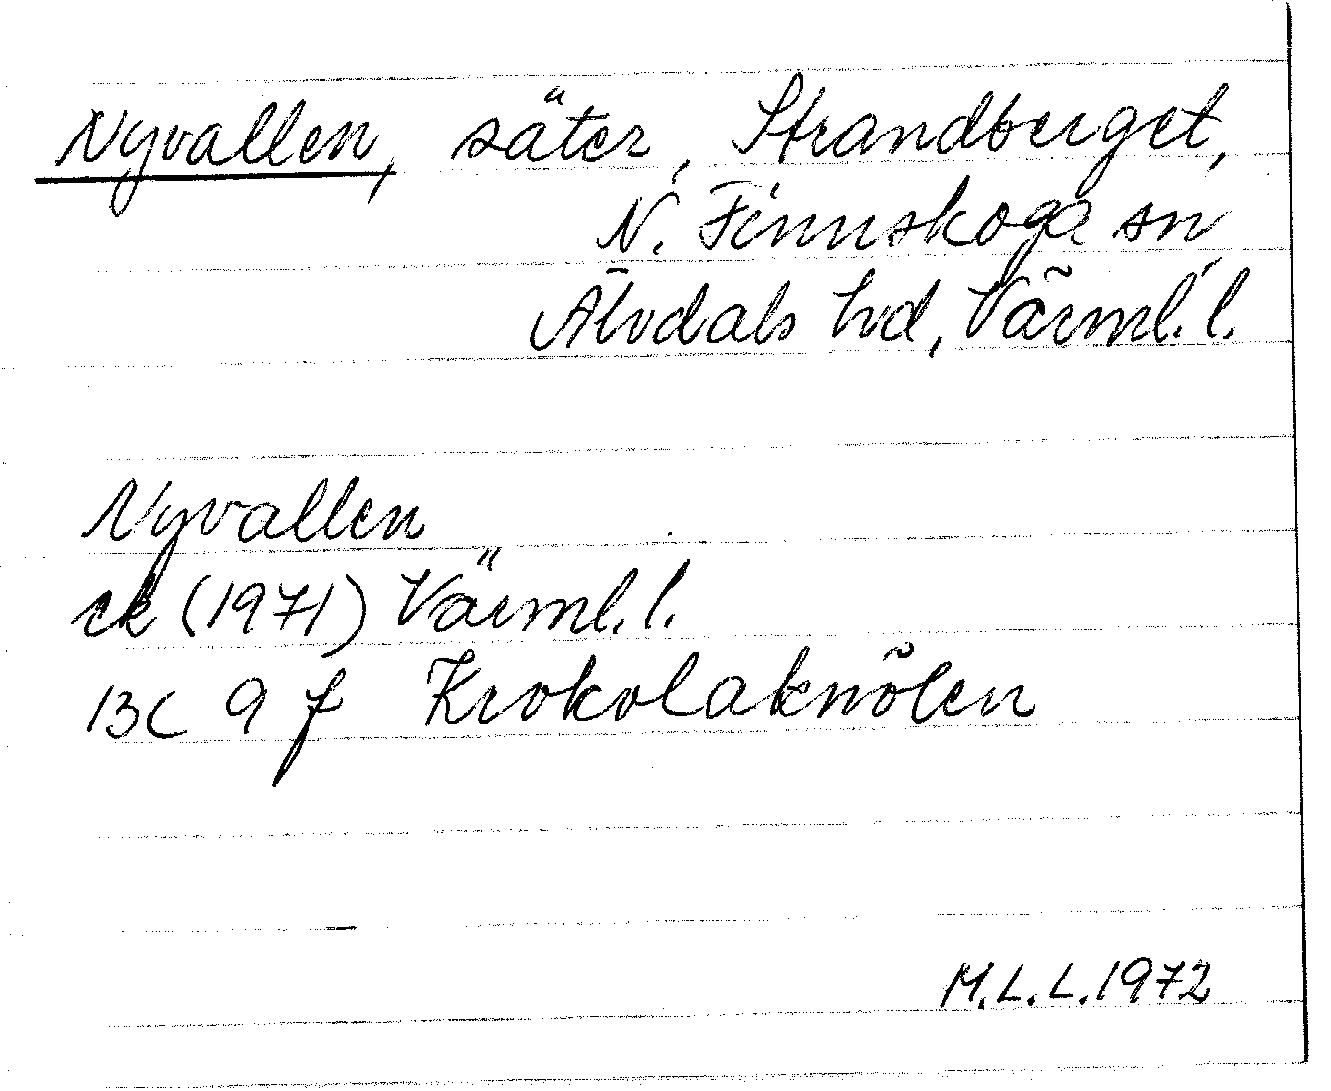 Nyvallen, säter, Strandberget,
N. Finnskoga sn
Älvdals hd, Värml. l.
Nyvallen
ek (1971) Värml. l.
13C 9 f Krokolaknölen
M.L.L. 1972